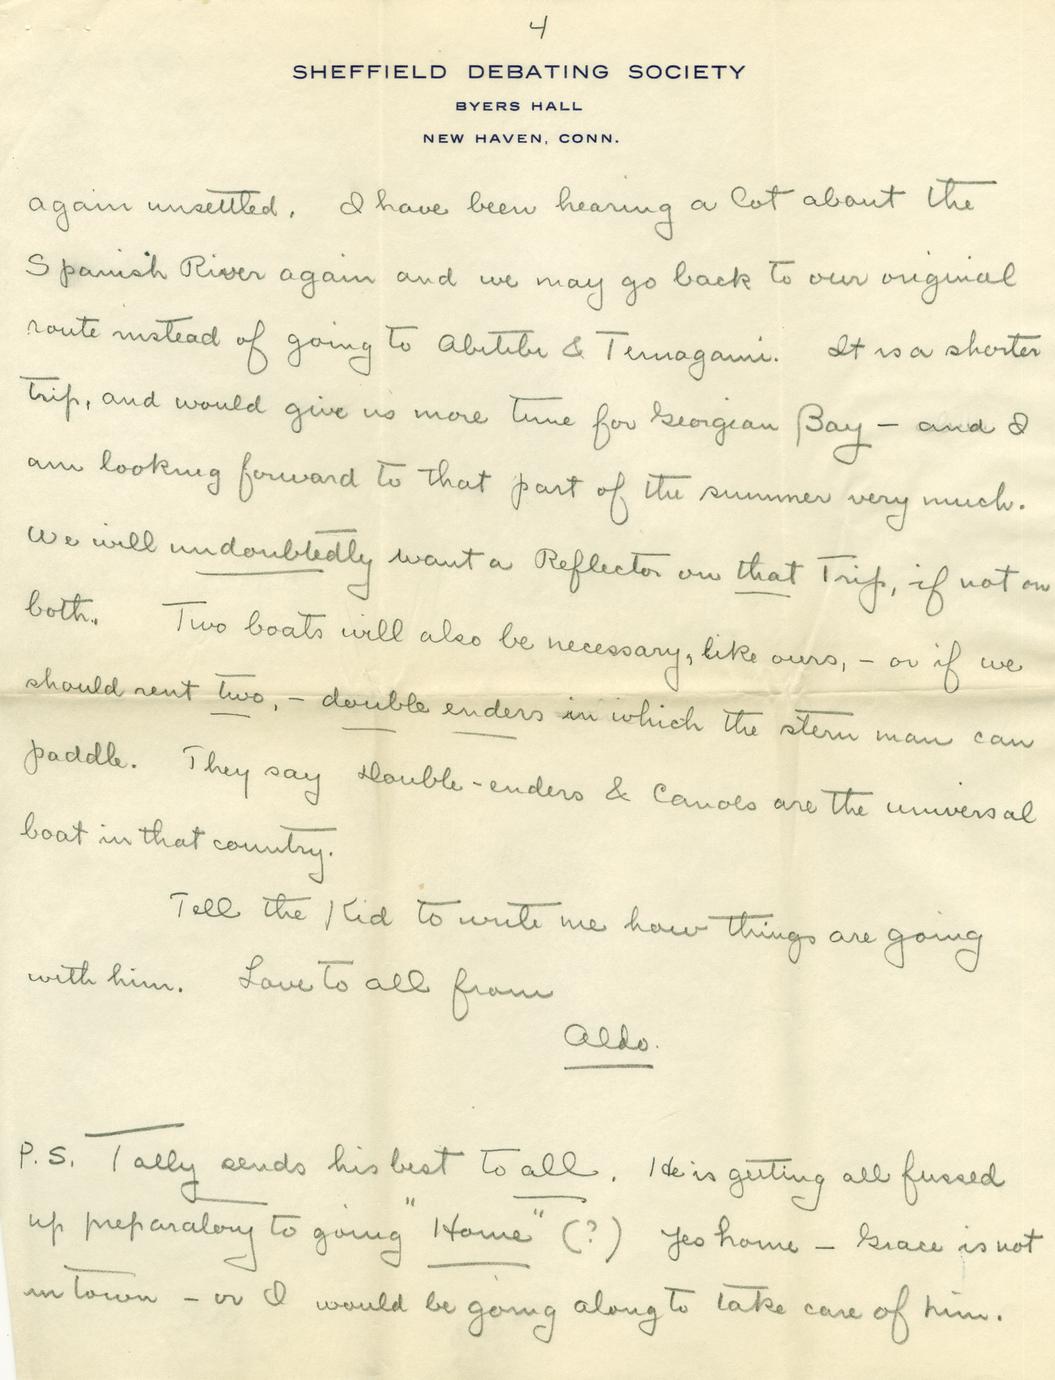 4
SHEFFIELD DEBATING SOCIETY
BYERS HALL
NEW HAVEN, CONN.
again unsettled. I have been hearing a lot about the
Spanish River again and we may go back to our original
route instead of going to Abitibi & Temagami. It is a shorter
trip, and would give us more time for Georgian Bay – and I
am looking forward to that part of the summer very much.
We will undoubtedly want a Reflector on that Trip, if not on
both. Two boats will also be necessary, like ours, – or if we
should rent two, – double enders in which the stern man can
paddle. They say Double-enders & Canoes are the universal
boat in that country.
Tell the Kid to write me how things are going
with him. Love to all from
Aldo.
P.S. Tally sends his best to all. He is getting all fussed
up preparatory to going "Home" (?) Yes home – Grace is not
in town – or I would be going along to take care of him.